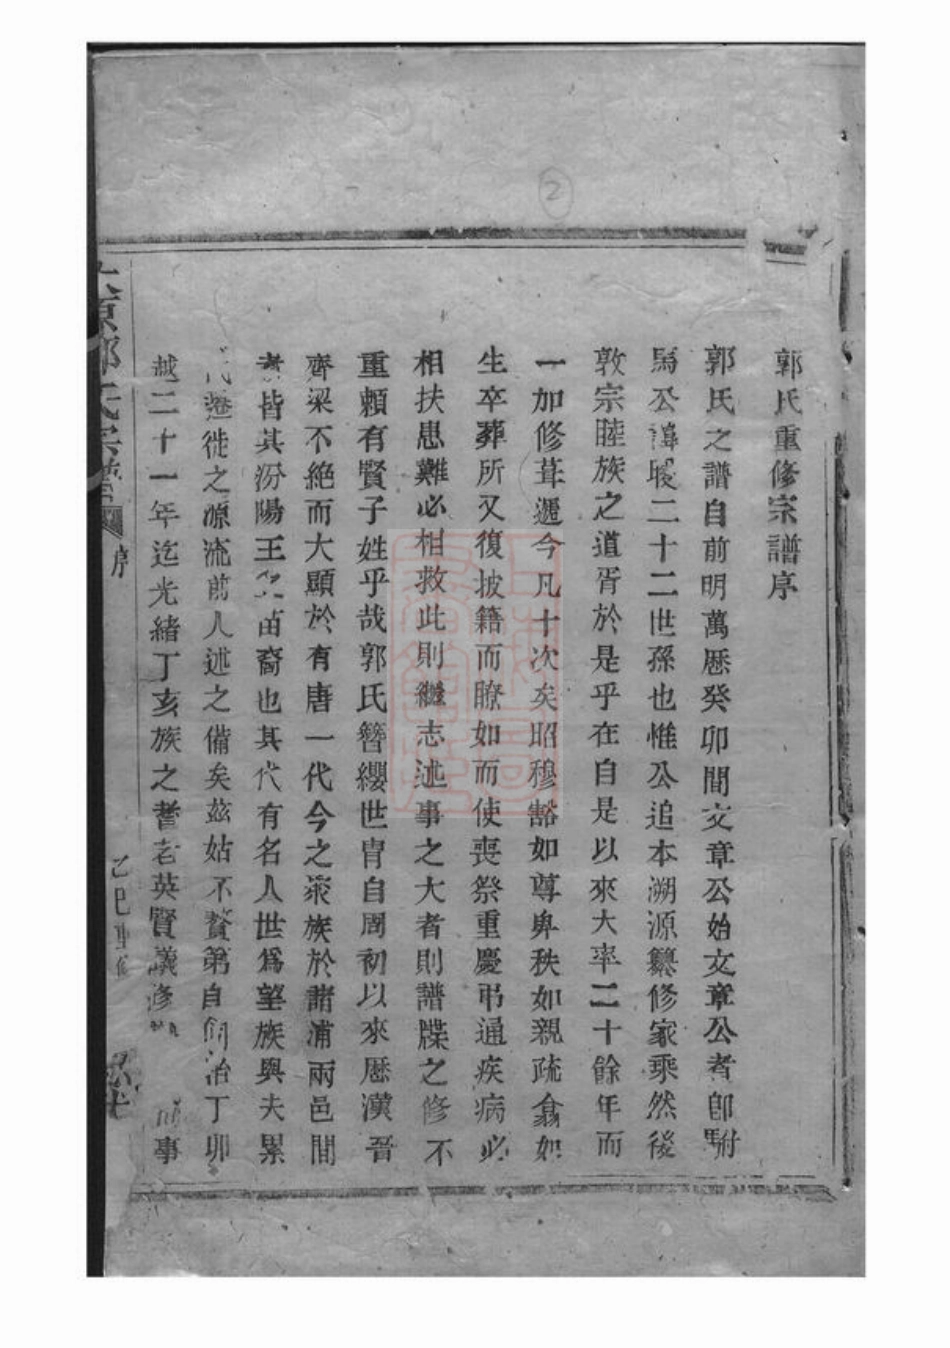 ②
郭氏重修宗譜序
郭氏之譜自前明萬厯癸卯間文章公始文章公者卽駙
馬公諱曖二十二世孫也惟公追本溯源纂修家乘然後
敦宗睦族之道胥於是乎在自是以來大率二十餘年而
一加修葺遞今凡十次矣昭穆豁如尊卑秩如親疏翕如
生卒葬所又復披籍而瞭如而使喪祭重慶弔通疾病必
相扶患難必相救此則繼志述事之大者則譜牒之修不
重賴有賢子姓乎哉郭氏簪纓世胄自周初以來厯漢晉
齊梁不絶而大顯於有唐一代今之滚族於諸浦兩邑間
者皆其汾陽王之苗裔也其代有名人世爲望族與夫累
代遷徙之源流前人述之備矣茲姑不贅第自同治丁卯
越二十一年迄光緒丁亥族之耆老英賢議修 事
太原郭氏宗譜
序
乙巳重修